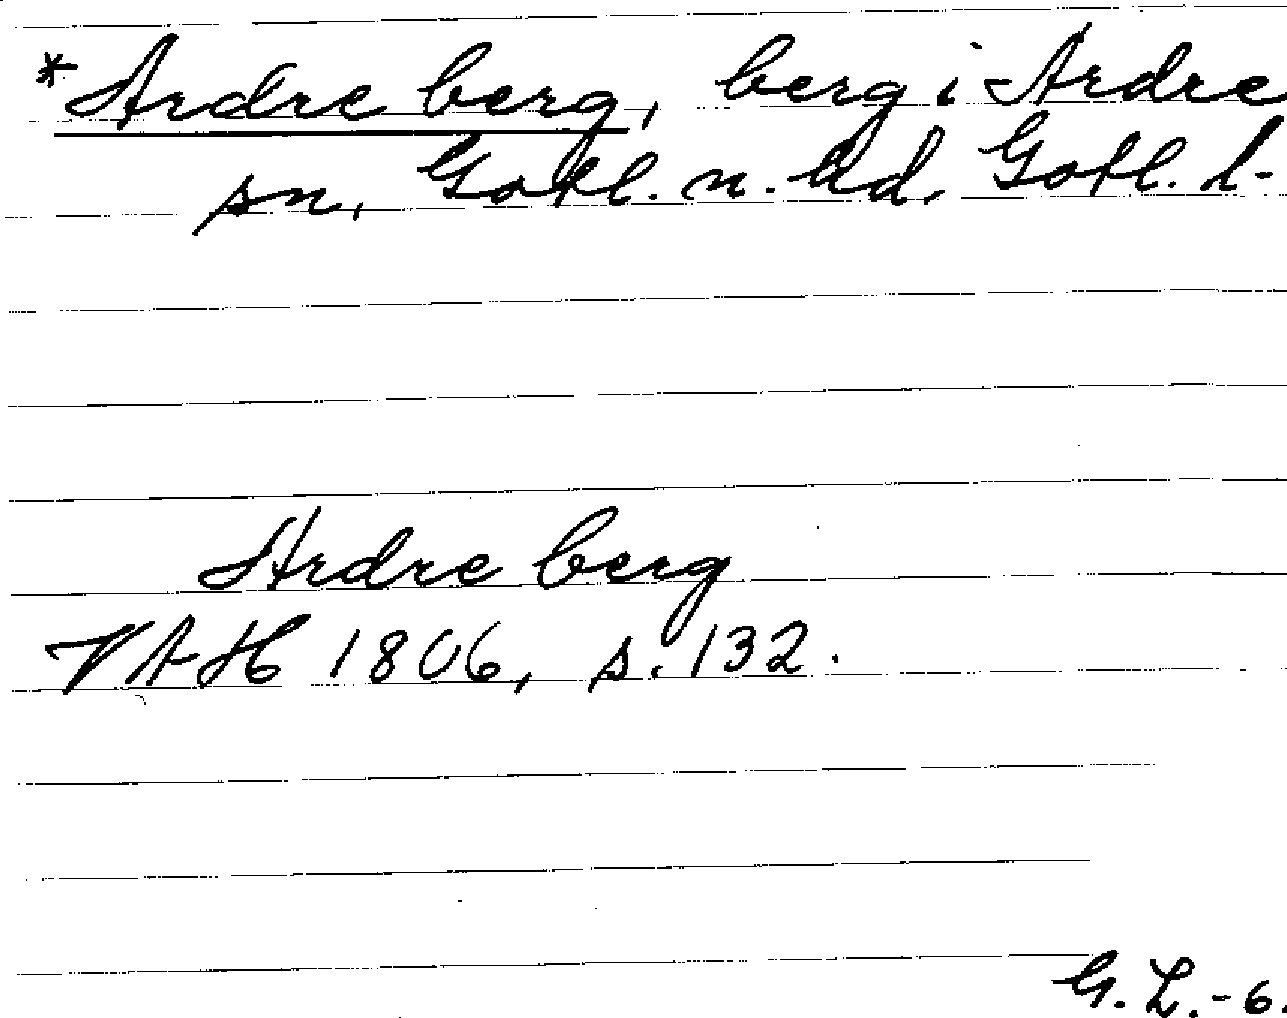 *Ardre berg, berg i Ardre
sn, Gotl. n. hd. Gotl. l-
Ardre berg
VAH 1806, s. 132.
G. L. - 6.